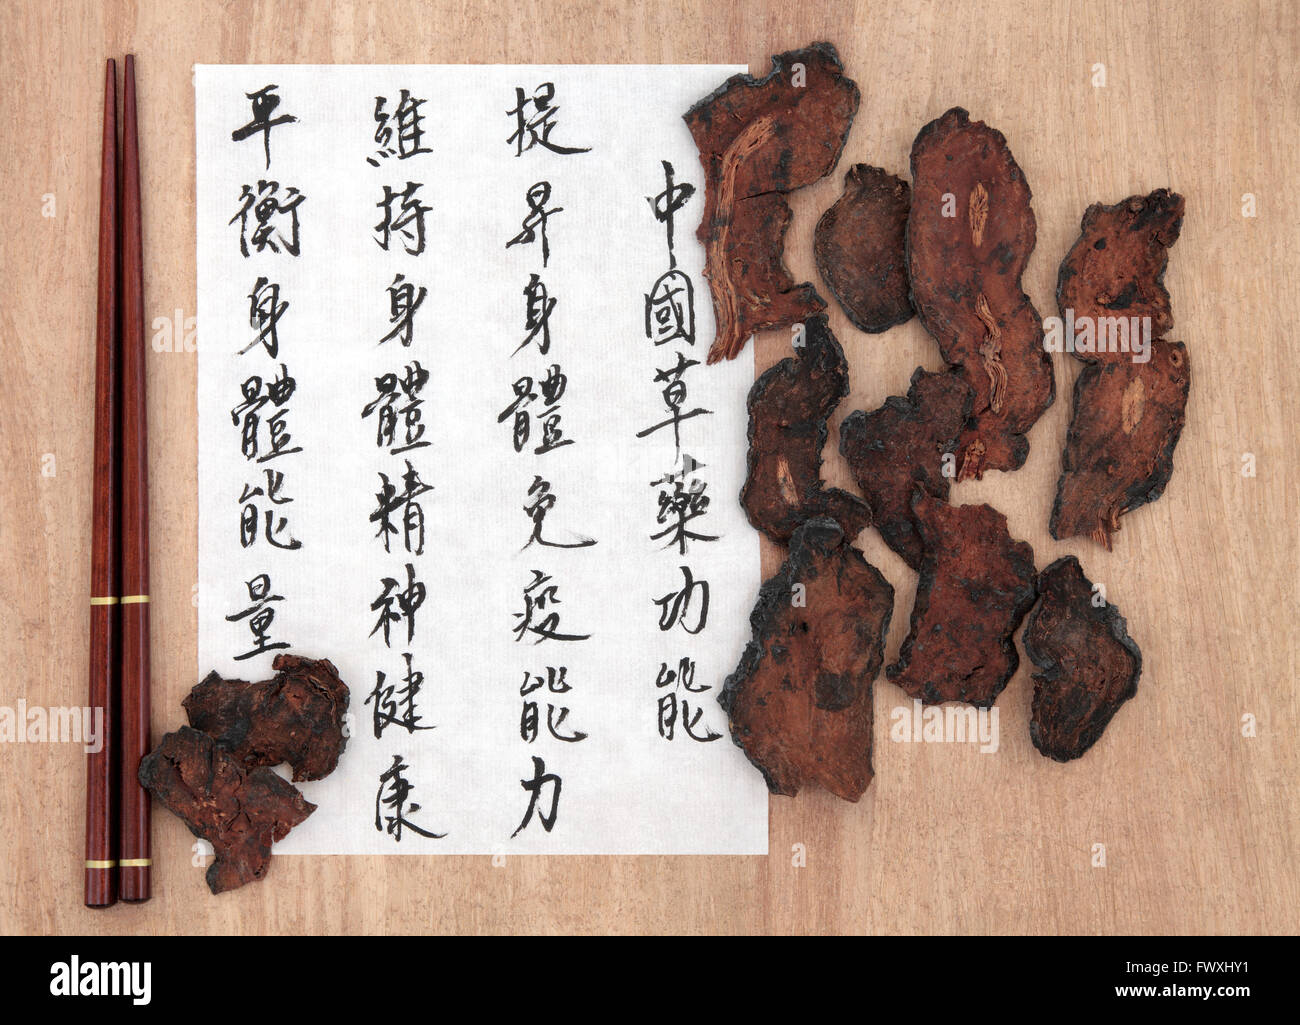 中國草藥功能
提昇身體免疫能力
維持身體精神健康
平衡身體能量
alamy
alamy
Image ID: FWXHY1
www.alamy.com